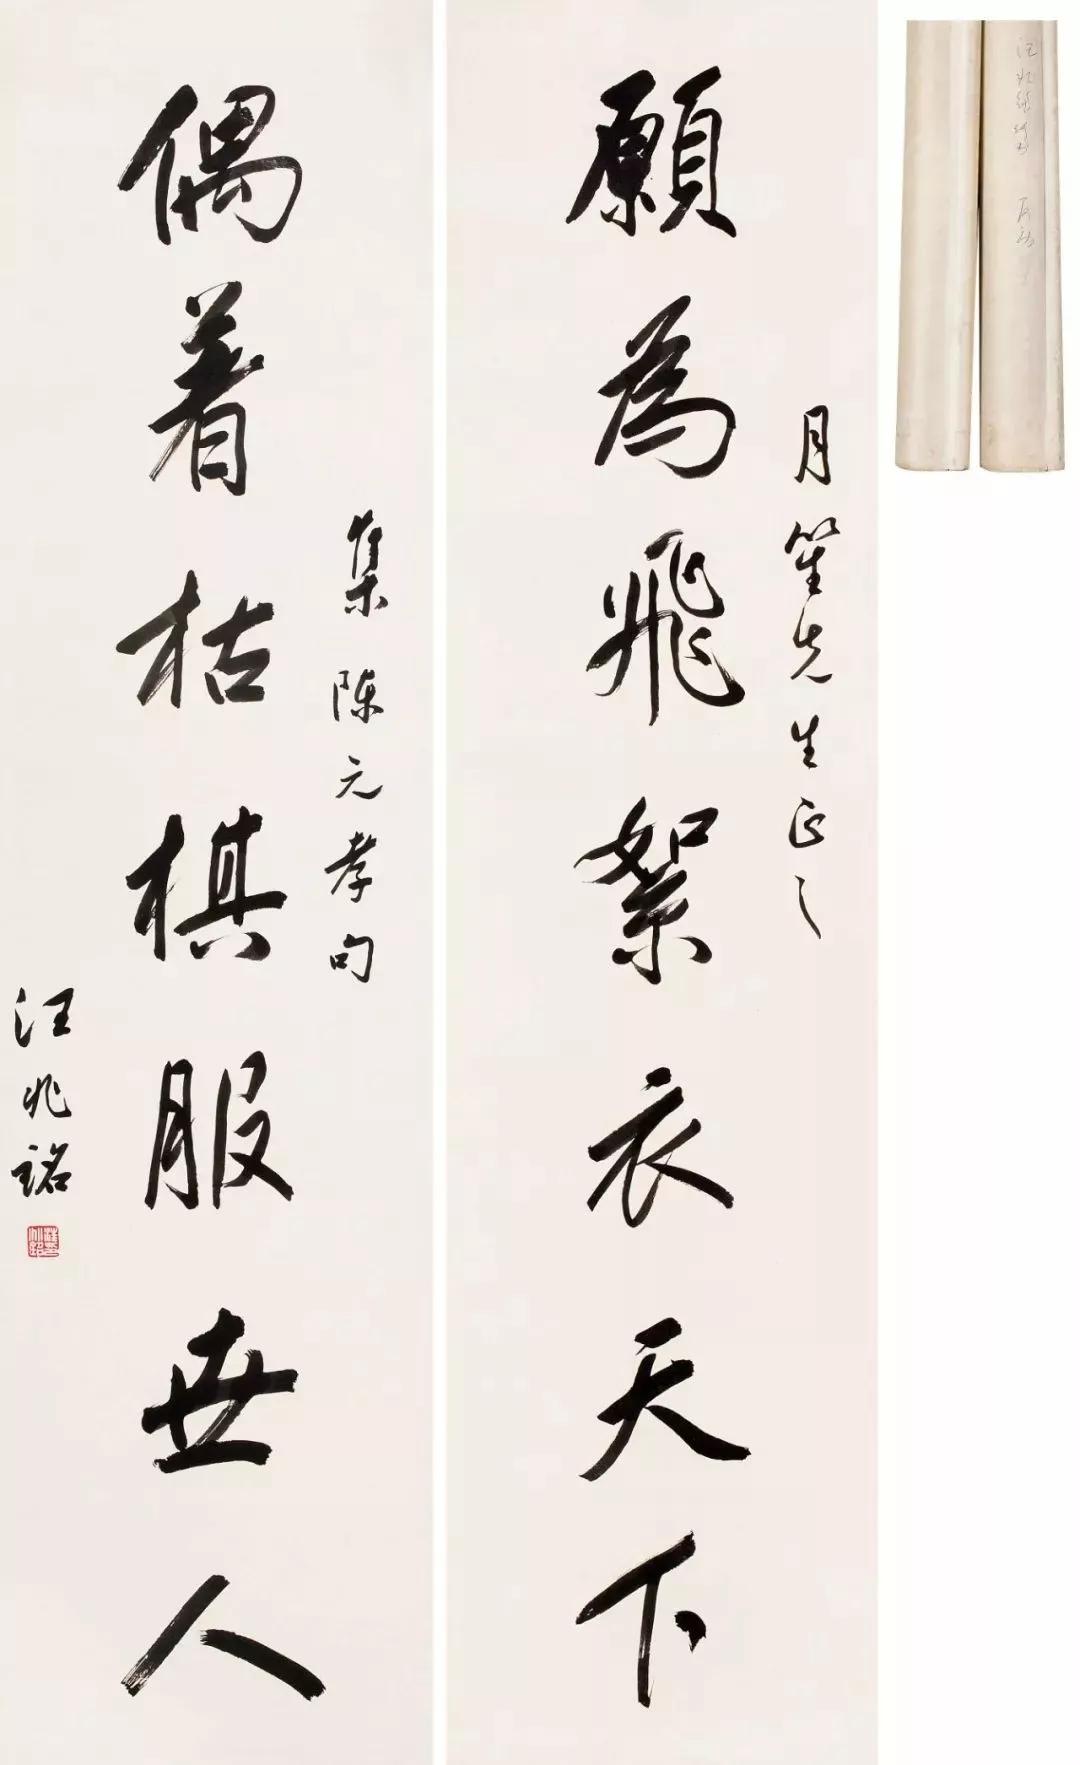 願為飛絮衣天下
月笙先生正之
偶着枯棋服世人
集陳元孝句
汪兆銘